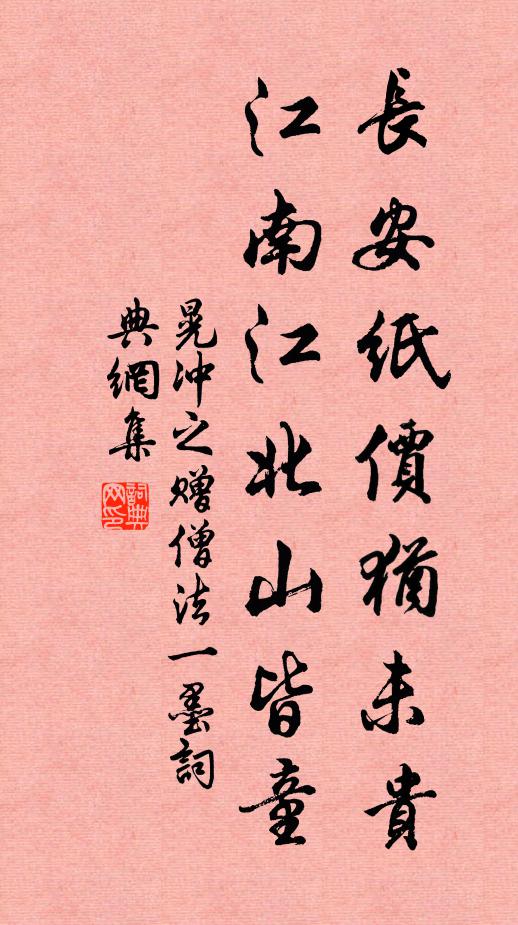 長安紙價猶未貴
江南江北山皆童
晁沖之贈僧法一墨詞
典網集
詞典
网印